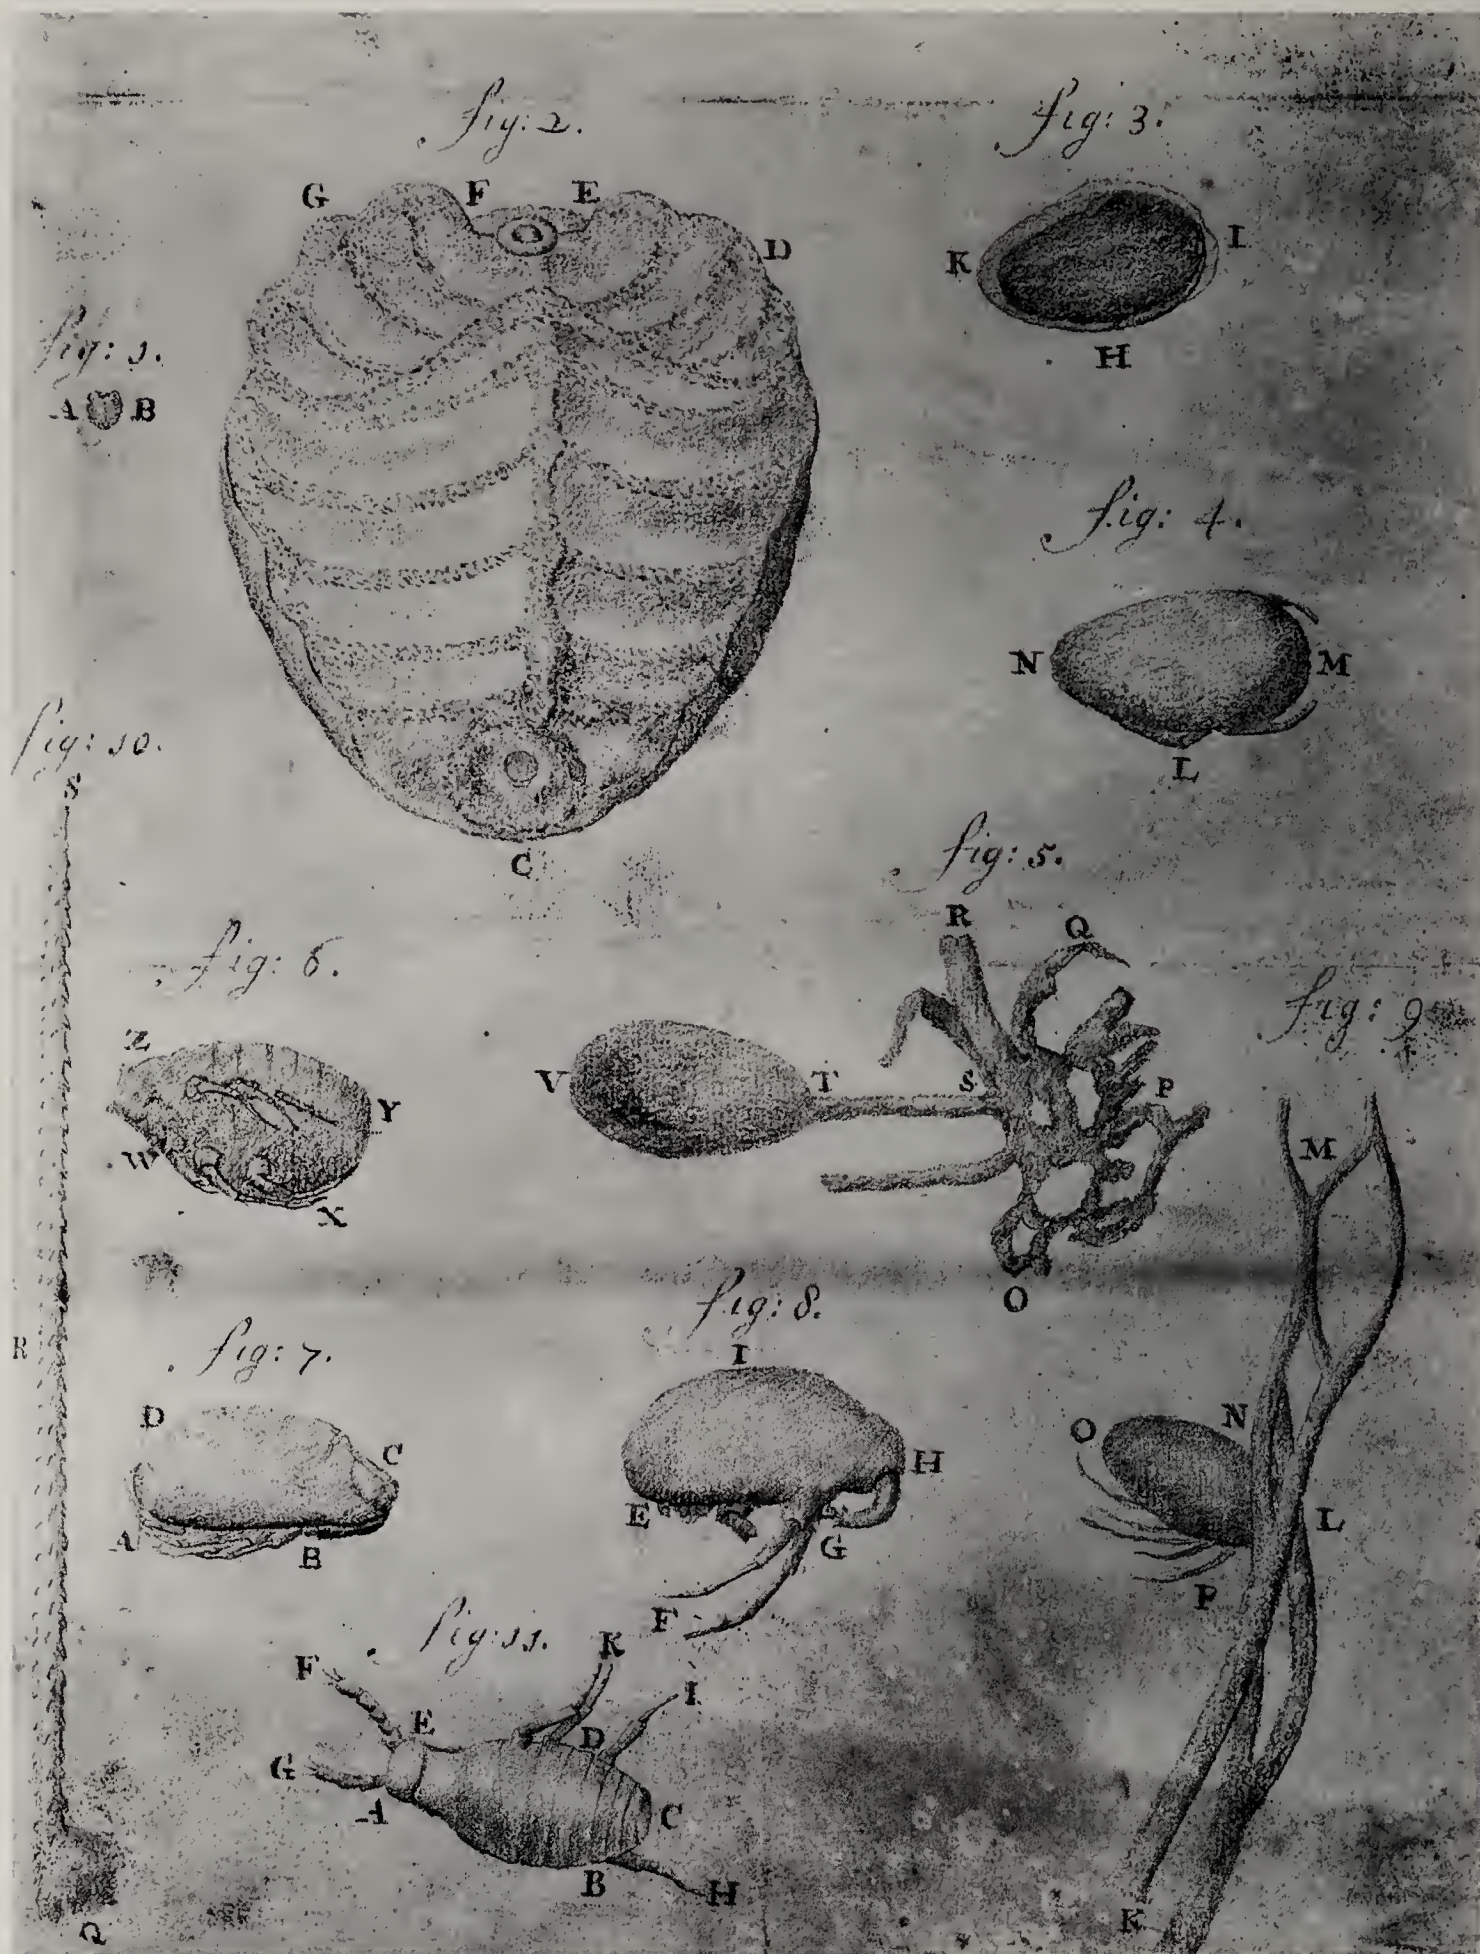 fig: 2.
G F E D
C
fig: 3.
K I
H
fig: 1.
A B
fig: 4.
N M
L
fig: 10.
S
R
Q
fig: 5.
R Q
V T S P
O
fig: 6.
Z
Y
W
X
fig: 9.
M
O N
L
P
K
fig: 7.
D
C
A B
fig: 8.
I
H
E
G
F
fig: 11.
F K
E D I
G
A C
B H